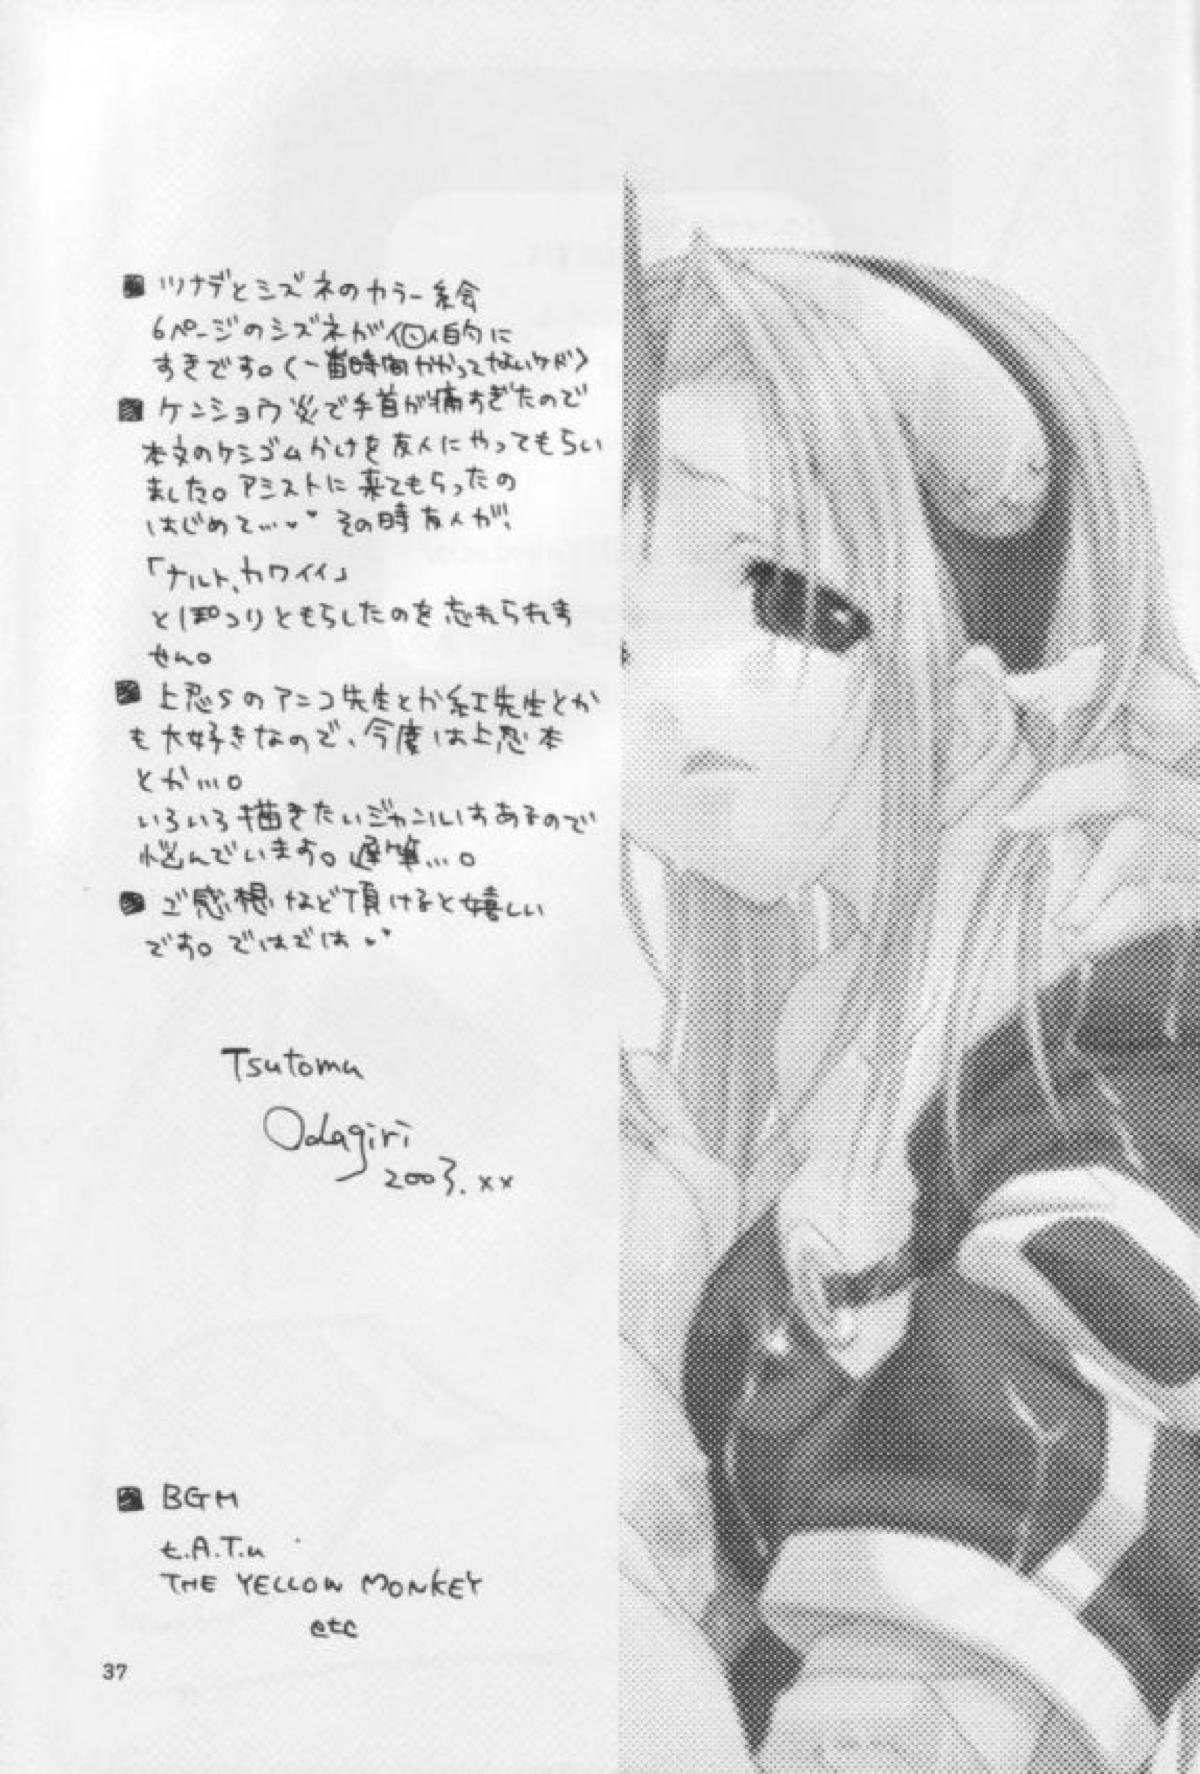 ■ ツナデとシズネのカラー絵
6ページのシズネが個人的に
すきです。(一番時間かかってないケド)
■ ケンショウ炎で手首が痛すぎたので
本文のケシゴムかけを友人にやってもらい
ました。アシストに来てもらったの
はじめて…♥♥ その時友人が、
「ナルト、カワイイ」
とぽつりともらしたのを忘れられま
せん。
■ 上忍Sのアンコ先生とか紅先生とか
も大好きなので、今度は上忍本
とか…。
いろいろ描きたいジャンルはあるので
悩んでいます。遅筆…。
■ ご感想など頂けると嬉しい
です。ではでは♥♥
Tsutomu
Odagiri
2003.xx
■ BGM
t.A.T.u
THE YELLOW MONKEY
etc
37